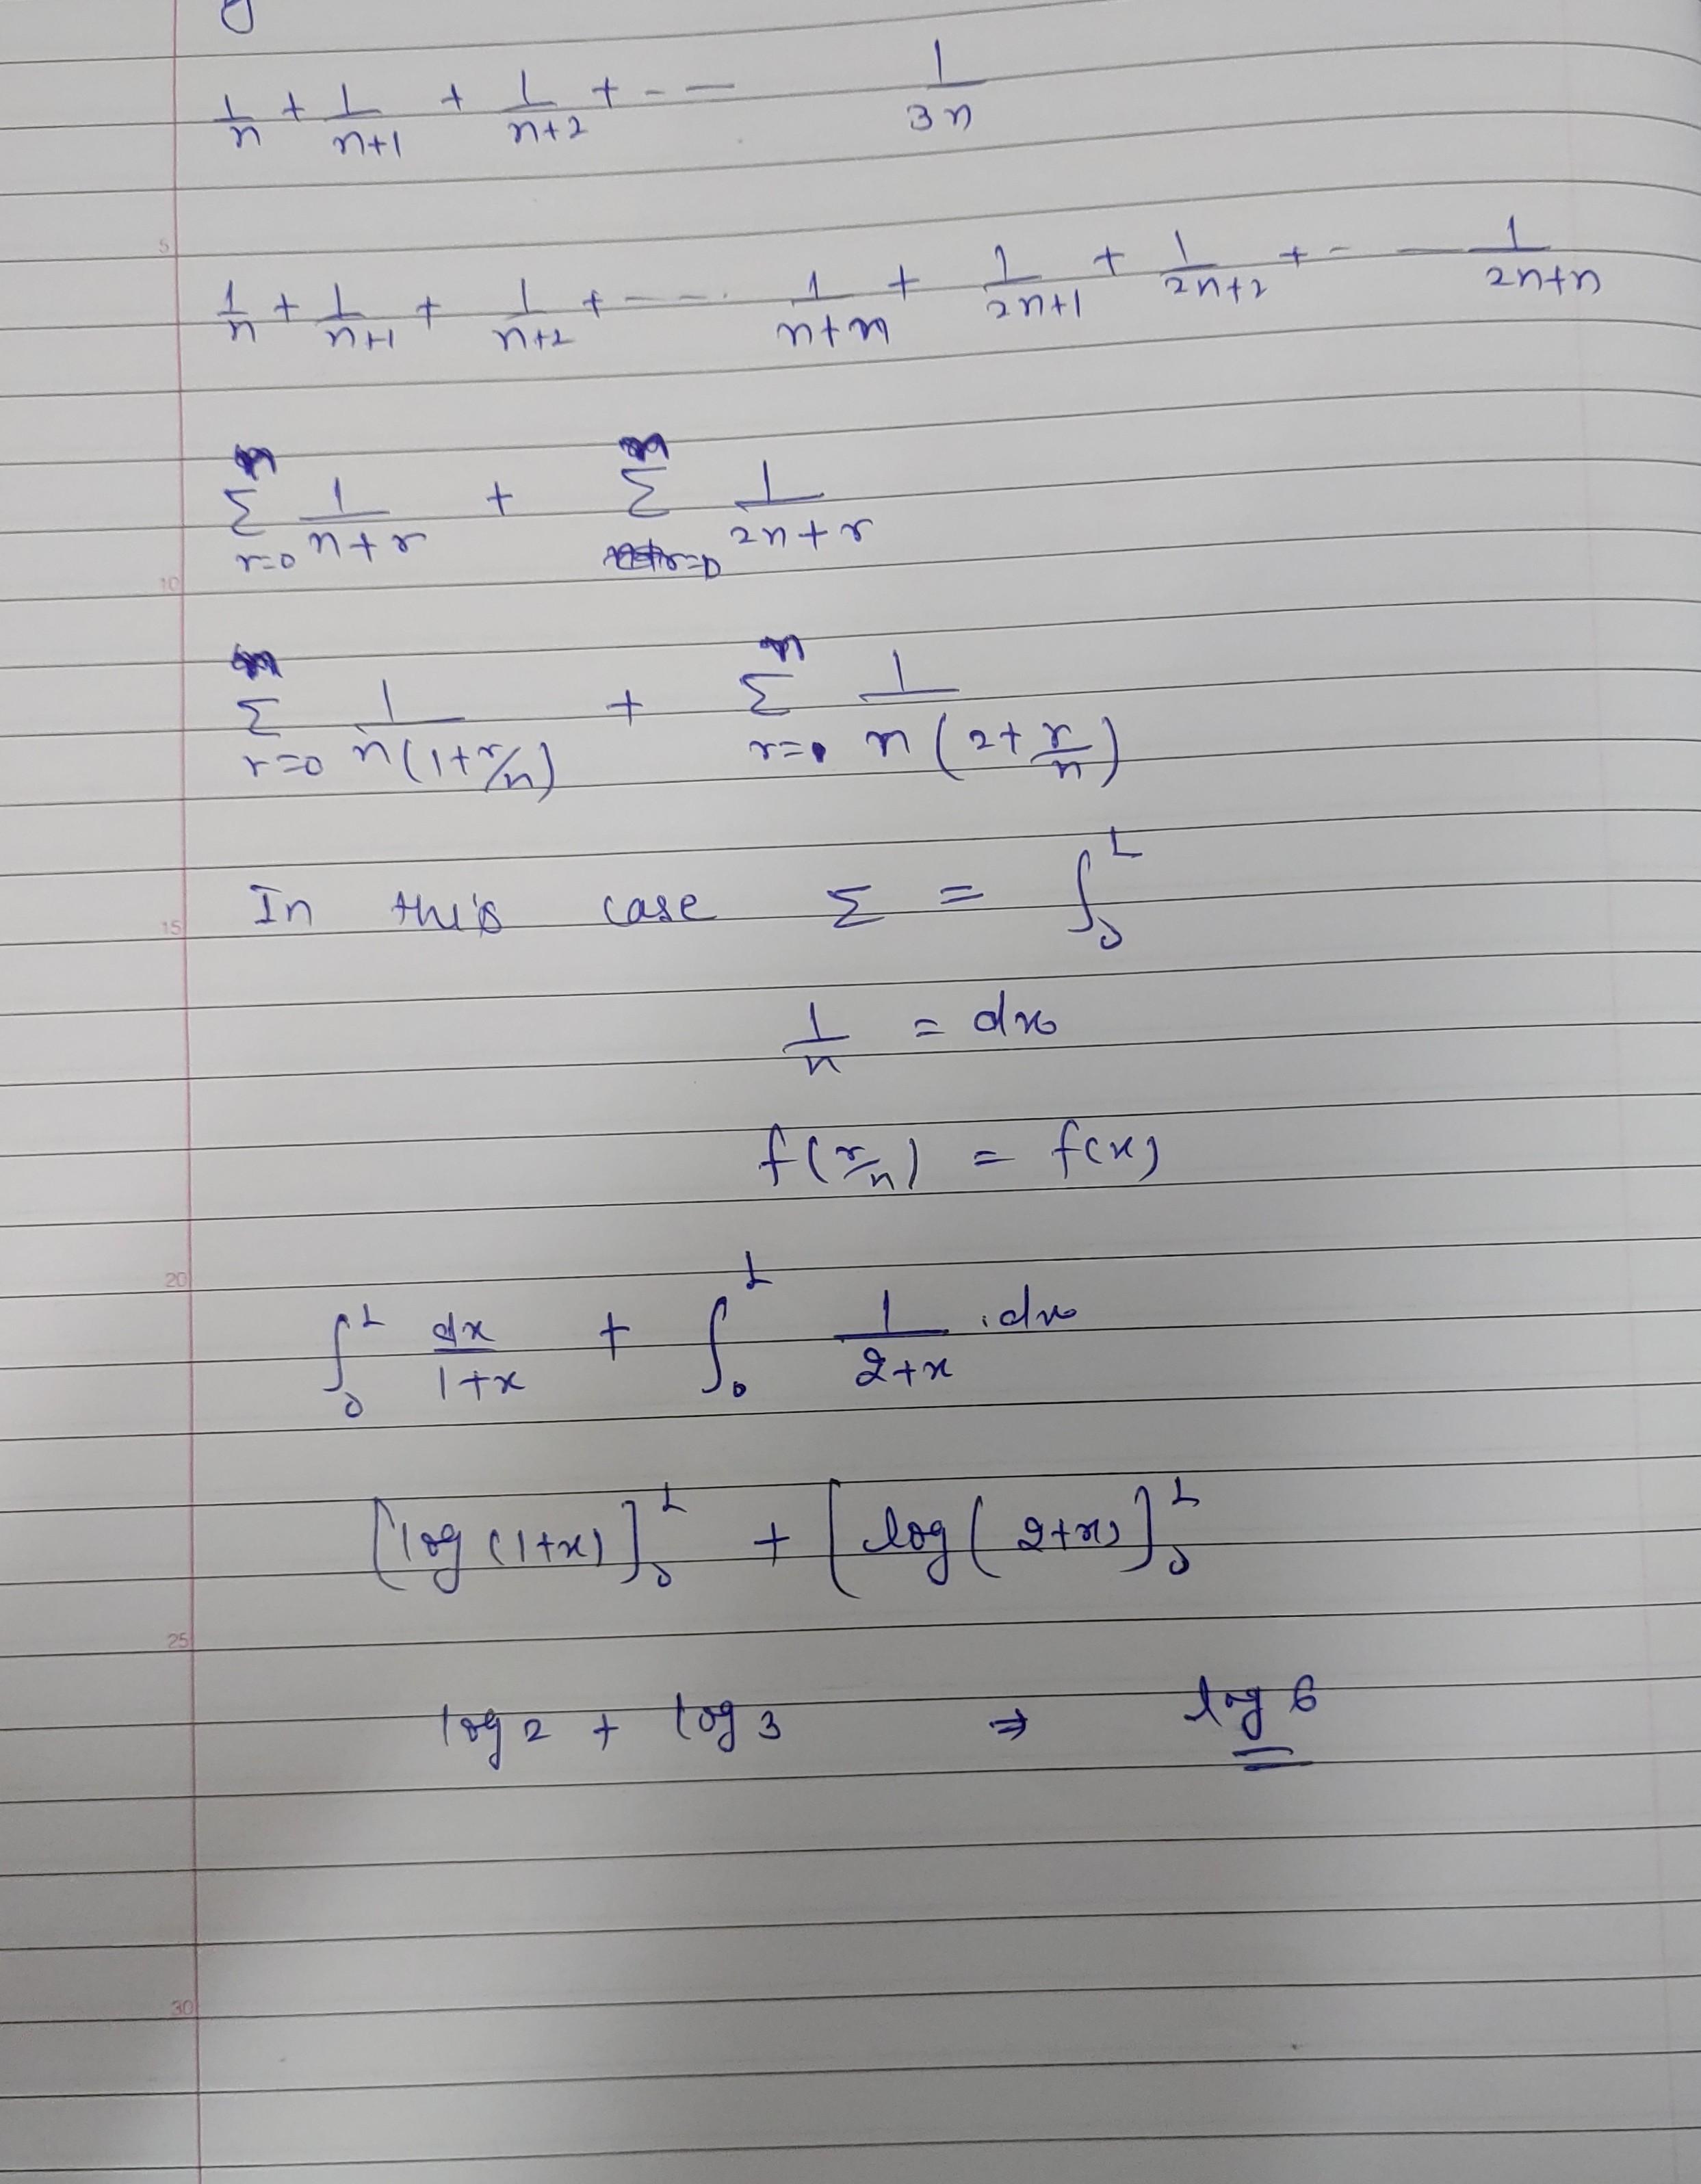 1/n + 1/(n+1) + 1/(n+2) + - - — 1/3n
5
1/n + 1/(n+1) + 1/(n+2) + - - - . 1/(n+n) + 1/(2n+1) + 1/(2n+2) + - — 1/(2n+n)
n Σ r=0 1/(n+r) + n Σ r=0 1/(2n+r)
10
n Σ r=0 1/(n(1+r/n)) + n Σ r=0 1/(n(2+r/n))
15 In this case Σ = ∫₀¹
1/n = dx
f(r/n) = f(x)
20
∫₀¹ dx/(1+x) + ∫₀¹ 1/(2+x) .dx
[log (1+x)]₀¹ + [log(2+x)]₀¹
25
log 2 + log 3 ⇒ log 6
30